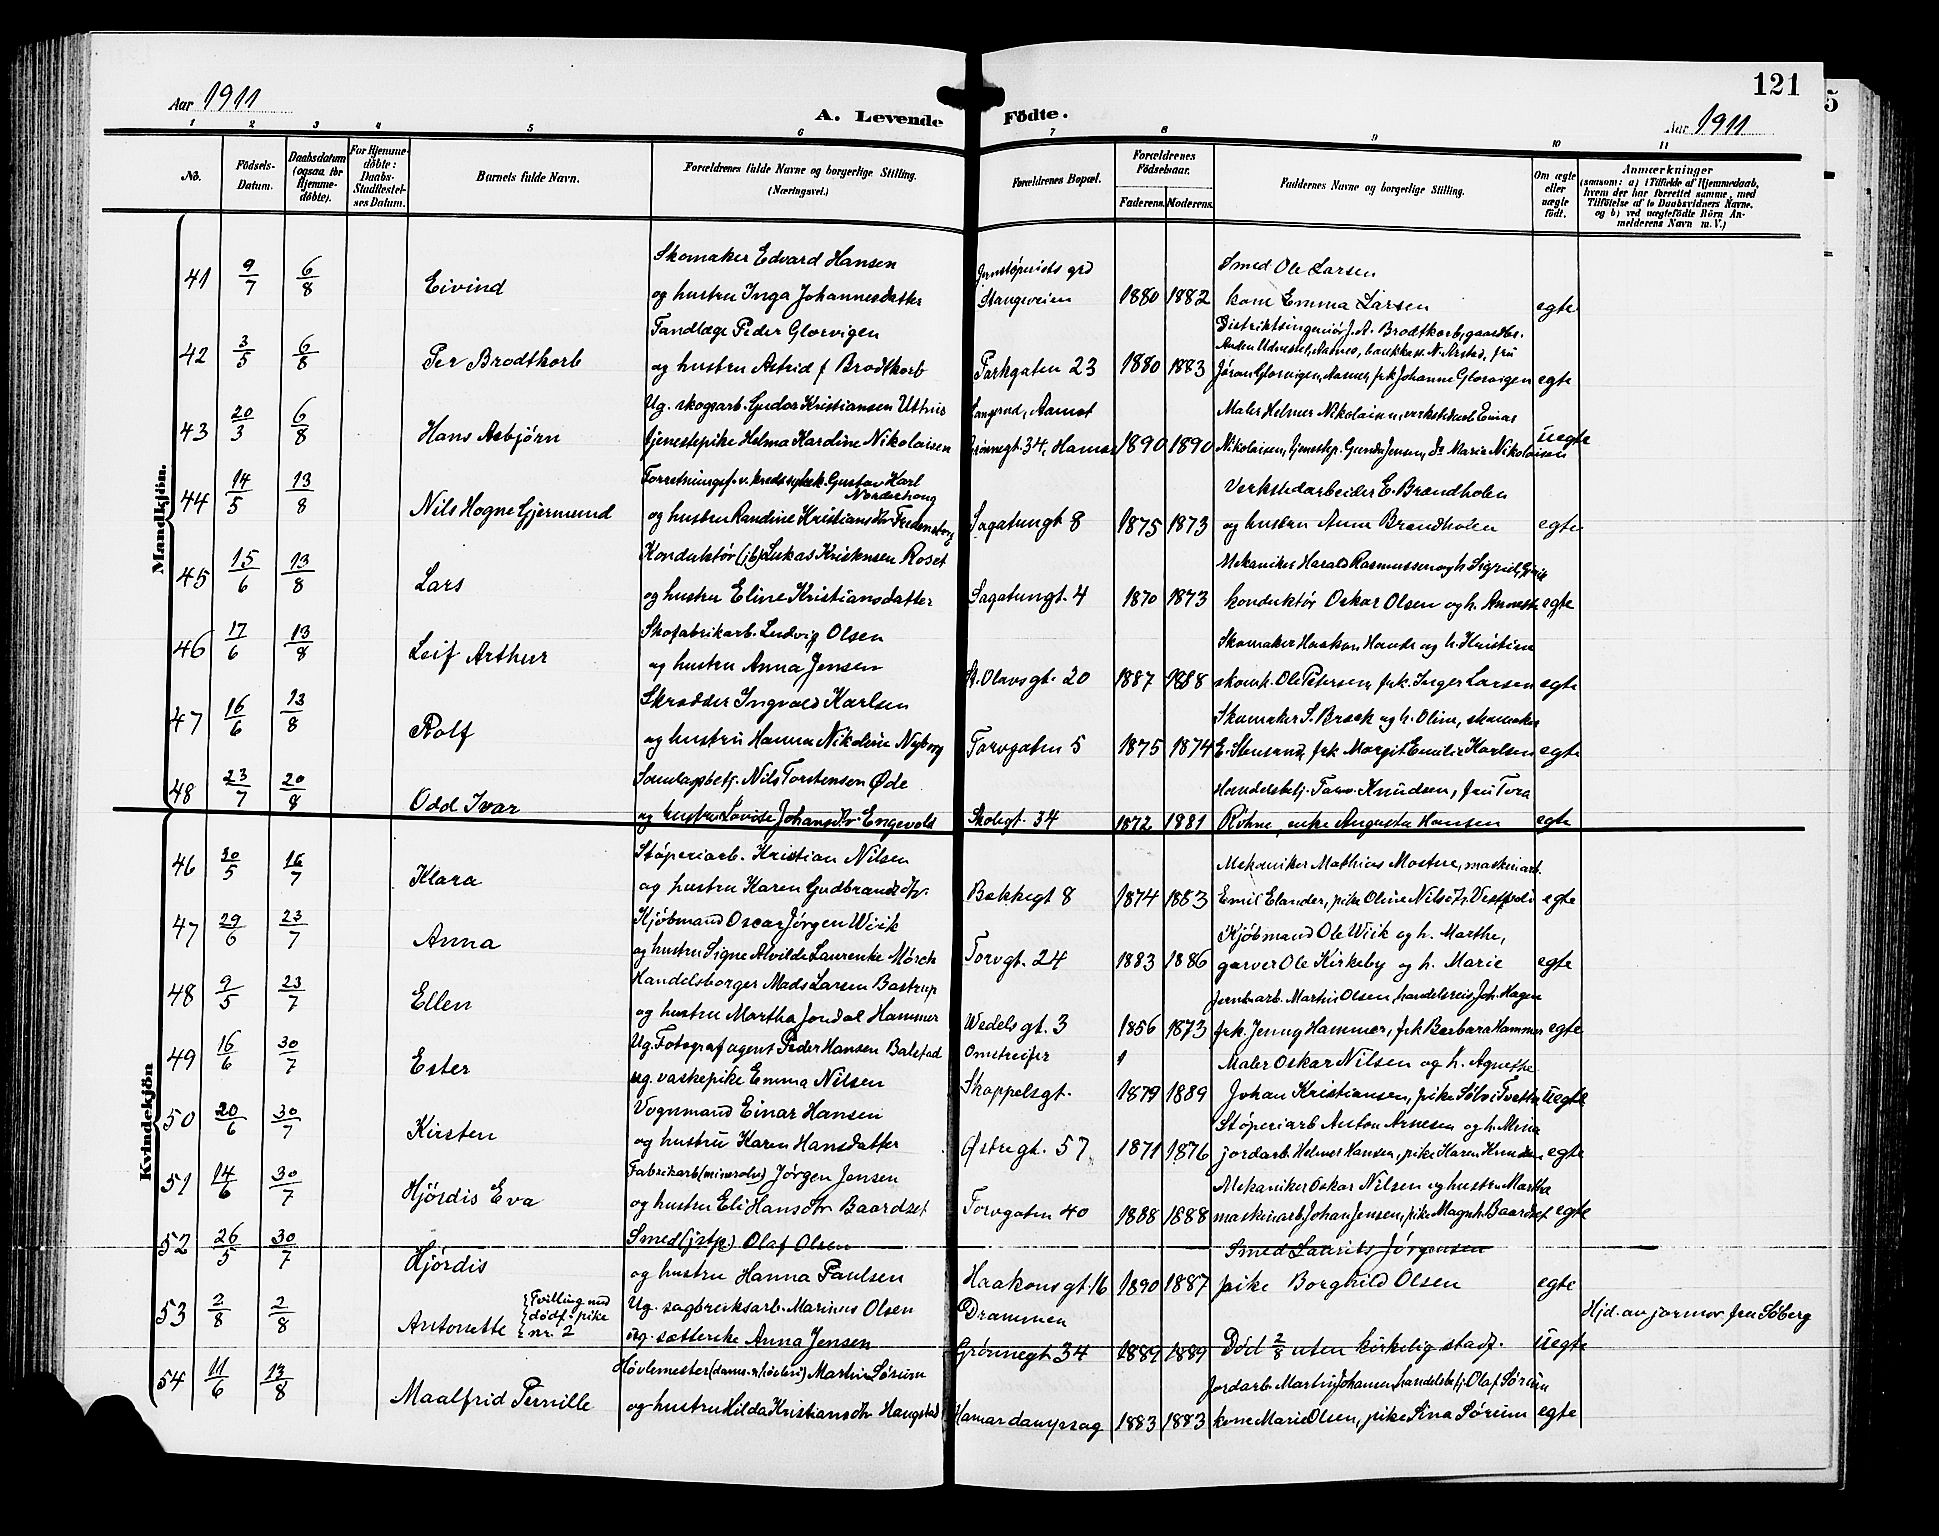 121
5
Aar 1911
A. Levende Födte.
Aar 1911
1 2 3 4 5 6 7 8 9 10 11
No.
Födsels-Datum.
Daabsdatum (ogsaa for Hjemme-döbte).
For Hjemme-döbte: Daabs-Stadfæstel-ses Datum.
Barnets fulde Navn.
Forældrenes fulde Navne og borgerlige Stilling.
(Næringsvei.)
Forældrenes Bopæl.
Forældrenes Födselsaar.
Faderens. Moderens.
Faddernes Navne og borgerlige Stilling.
Om ægte eller uægte födt.
Anmærkninger
(saasom: a) i Tilfælde af Hjemmedaab,
hvem der har forrettet samme, med
Tilföielse af to Daabsvidners Navne,
og b) ved uægtefödte Börn An-
melderens Navn m. V.)
Mandkjön.
Skomaker Edvard Hansen Jernstøperiets grd Smed Ole Larsen
41 9/7 6/8 Eivind og hustru Inga Johannesdatter Stangeveien 1880 1882 kone Emma Larsen egte
Tandlæge Peder Glorvigen Distriktsingeniör J. A. Brodtkorb, gaardbr.
42 3/5 6/8 Per Brodtkorb og hustru Astrid f Brodtkorb Parkgaten 23 1880 1883 Jöran Glorvigen, Aasnes, frk Johanne Glorvigen egte
Ug. skogsarb. Gudor Kristiansen Aamot Maler Helmer Nikolaisen, verkstedarb. Einar
43 20/3 6/8 Hans Asbjörn tjenestepike Helma Kardine Nikolaisen Grönnegt. 34, Hamar 1890 1890 Nikolaisen, tjenestep. Gunda Jensen, do Marie Nikolaisen uegte
Forretningsf. v. kredssykek. Gustav Karl Norderhoug Verkstedarbeider E. Brændholen
44 14/5 13/8 Nils Hogne Gjermund og hustru Randine Kristiansdtr Fredensborg Sagatungt 8 1875 1873 og hustru Anna Brændholen egte
Konduktör (jb) Lukas Kristensen Roset Mekaniker Harald Rasmussen og h. Sigrid,
45 15/6 13/8 Lars og hustru Eline Kristiansdatter Sagatungt. 4 1870 1873 konduktör Oskar Olsen og h. egte
Skofabrikarb. Ludvig Olsen Skomaker Haakon og h. Kristine
46 17/6 13/8 Leif Arthur og hustru Anna Jensen St. Olavsgt. 20 1887 1888 skom. Ole Petersen, frk. Inger Larsen egte
Skrædder Ingvald Karlsen Skomaker S. Bræk og h. Oline, skomaker
47 16/6 13/8 Rolf og hustru Hanna Nikoline Nyborg Torvgaten 5 1875 1874 E. Stensrud, frk. Margit Emilie Karlsen egte
Nils Torstensen Øde Handelsbetj. Knudsen, fru Tora
48 23/7 20/8 Odd Ivar og hustru Lovise Johansdtr Engevold Skolegt. 34 1872 1881 enke Augusta Hansen egte
Kvindekjön
Stöperiarb. Kristian Nilsen Mekaniker Mathias Mostue, maskinarb.
46 30/5 16/7 Klara og hustru Karen Gudbrandsdtr. Bekkegt 8 1874 1883 Emil Elander, pike Oline Nilsdtr. egte
Kjöbmand Oscar Jörgen Wiik Kjöbmand Ole Wiik og h. Marthe,
47 29/6 23/7 Anna og hustru Signe Alvilde Laurenke Mørch Torvgt. 24 1883 1886 garver Ole Kirkeby og h. Marie egte
Handelsborger Mads Larsen Bastrup Jernbarb. Martin Olsen, handelsreis. Joh. Hagen
48 9/5 23/7 Ellen og hustru Martha Jondal Hammer Wedelsgt. 3 1856 1873 frk. Jenny Hammer, frk Barbara Hammer egte
Ug. Fotografagent Peder Hansen Balstad Omstreifer Maler Oskar Nilsen og h. Agnethe
49 16/6 30/7 Ester ug. vaskepike Emma Nilsen Skappelsgt. 1879 1889 Johan Kristiansen, pike Sölvi Tvetta uegte
Vognmand Einar Hansen Stöperiarb Anton Arnesen og h. Mina
50 20/6 30/7 Kirsten og hustru Karen Hansdatter Østregt. 57 1871 1876 jordarb. Helmer Hansen, pike Karen egte
Fabrikarb (mineralv.) Jørgen Jensen Mekaniker Oskar Nilsen og hustru Martha
51 14/6 30/7 Hjördis Eva og hustru Eli Hansdtr Baardset Torvgaten 40 1888 1888 maskinarb Johan Jensen, pike Magnh. Baardset egte
Smed (jstp.) Olaf Olsen Smed Laurits Jørgensen
52 26/5 30/7 Hjördis og hustru Hanna Paulsen Haakonsgt. 16 1890 1887 pike Borghild Olsen egte
Tvilling med dödf. pike nr. 2 Ug. sagbruksarb. Marinus Olsen Drammen Hjd. av jormor fru Söberg
53 2/8 2/8 Antonette og. sætterske Anna Jensen Grönnegt 34 1889 1889 Död 2/8 uten kirkelig stadf. uegte
Høvlemester Martin Sörum Jordarb. Martin Johansen, handelsbetj. Olaf Sörum
54 11/6 13/8 Maalfrid Pernille og hustru Hilda Kristiansdtr Haugstad Hamar dampsag 1883 1883 kone Marie Olsen, pike Sina Sörum egte